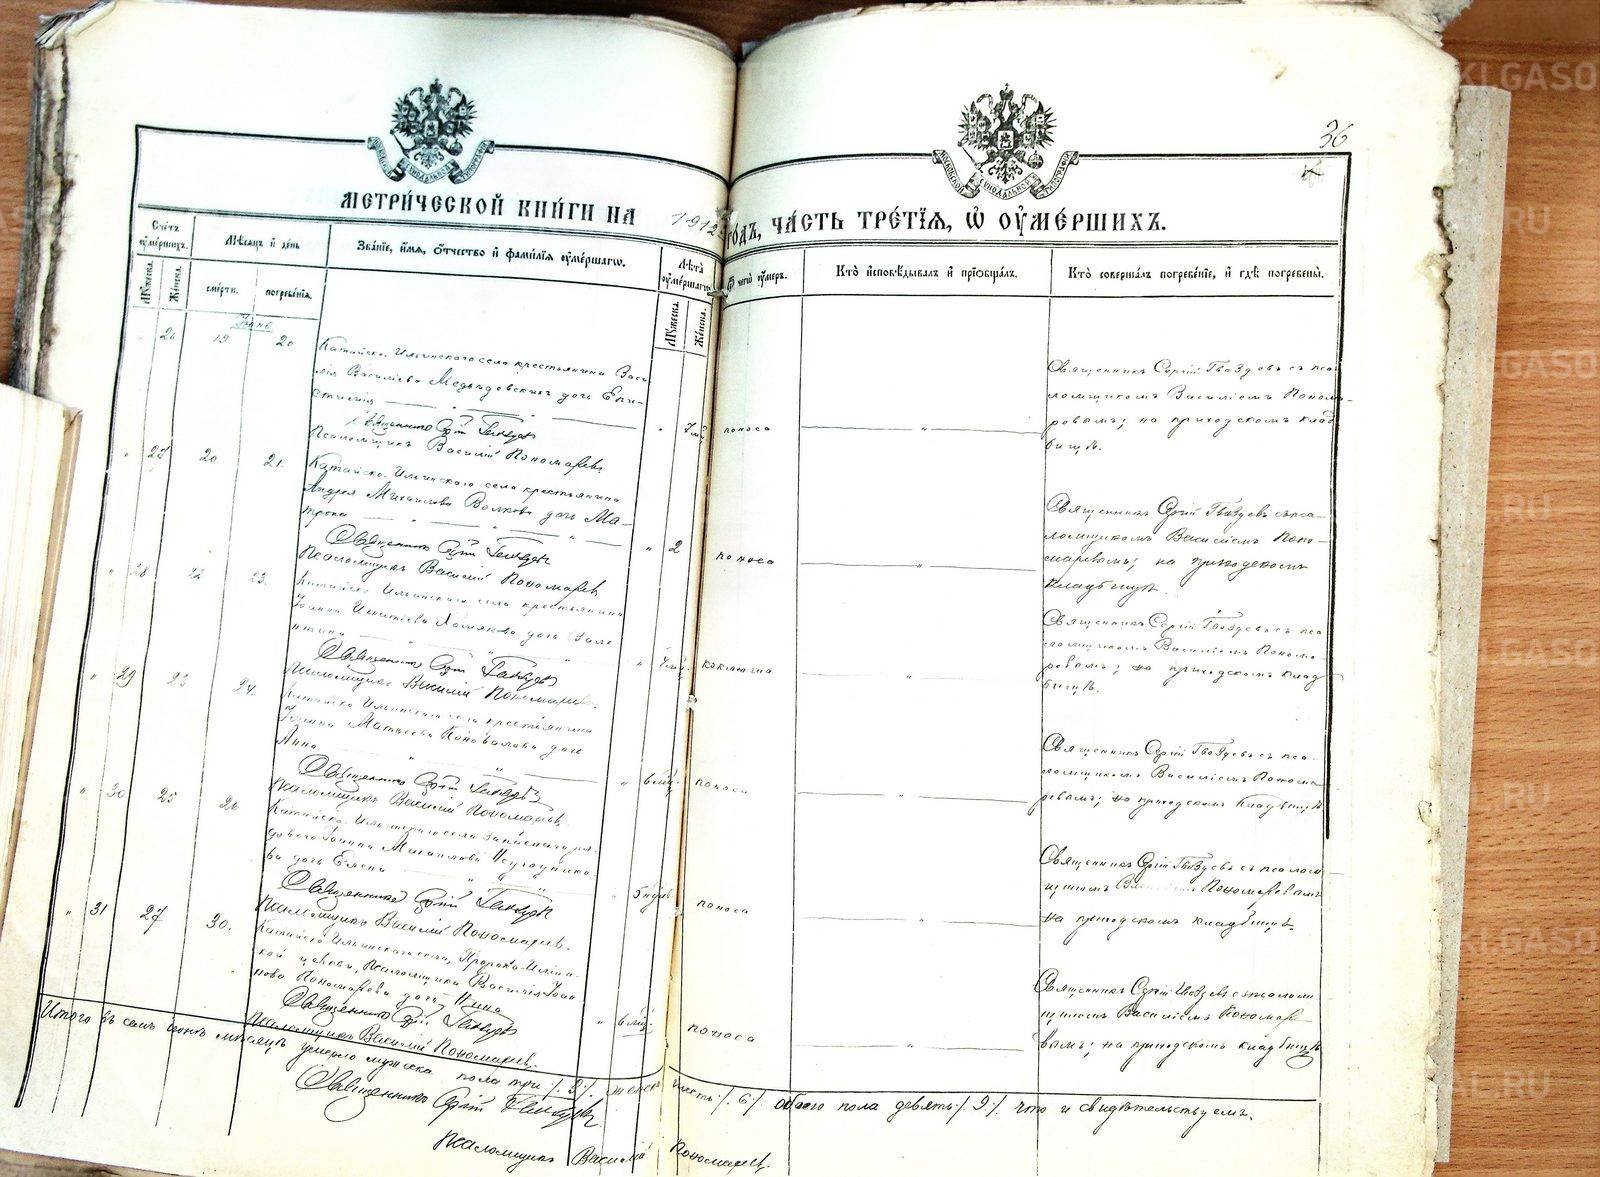 36
МЕТРИ́ЧЕСКОЙ КНИ́ГИ НА 1912 ГОДЪ, ЧА́СТЬ ТРЕ́ТЇЯ, Ѽ ОУ҆МЕ́РШИХЪ.
Сче́тъ оу҆ме́ршихъ.
Мꙋ́жеска.
Же́нска.
Мѣ́сяцъ и҆ де́нь
сме́рти.
погребе́нїя.
Зва́нїе, и҆́мя, ѻ҆́тчество и҆ фами́лїя оу҆ме́ршагѡ.
Лѣ́та оу҆ме́ршагѡ.
Мꙋ́жеска.
Же́нска.
Ѿ чегѡ̀ оу҆́меръ.
Кто̀ и҆сповѣ́дывалъ и҆ прїѡбща́лъ.
Кто̀ соверша́лъ погребе́нїе, и҆ гдѣ̀ погребены̀.
Іюнь
26 19 20
Катайско-Ильинскаго села крестьянина Васи
лія Васильева Медвѣдевскихъ дочь Епи-
стимія
Священникъ Сергій Гвоздевъ
Псаломщикъ Василій Пономаревъ
7 мѣс. поноса
Священникъ Сергій Гвоздевъ съ пса
ломщикомъ Василіемъ Понома
ревымъ; на приходскомъ клад
бищѣ.
" 27 20 21.
Катайско-Ильинскаго села крестьянина
Андрея Михаилова Волкова дочь Ма-
трона
Священникъ Сергій Гвоздевъ
Псаломщикъ Василій Пономаревъ
" 2 поноса
Священникъ Сергій Гвоздевъ съ пса-
ломщикомъ Василіемъ Поно-
маревымъ; на приходскомъ
кладбищѣ.
" 28 22 23.
Катайско-Ильинскаго села крестьянина
Іоанна Игнатіева Хомякова дочь Вале
нтина
Священникъ Сергій Гвоздевъ
Псаломщикъ Василій Пономаревъ.
" 7 мѣс. коклюша
Священникъ Сергій Гвоздевъ съ пса
ломщикомъ Василіемъ Понома-
ревымъ; на приходскомъ клад
бищѣ.
" 29 23 24.
Катайско-Ильинскаго села крестьянина
Іоанна Матвѣева Коновалова дочь
Анна
Священникъ Сергій Гвоздевъ
Псаломщикъ Василій Пономаревъ.
" 6 мѣс. поноса
Священникъ Сергій Гвоздевъ съ пса-
ломщикомъ Василіемъ Понома
ревымъ; на приходскомъ кладбищѣ
" 30 25 26
Катайско-Ильинскаго села запаснаго ря-
дового Іоанна Михаилова
ва дочь Елена
Священникъ Сергій Гвоздевъ
Псаломщикъ Василій Пономаревъ.
" 5 недѣль поноса
Священникъ Сергій Гвоздевъ съ псалом
щикомъ Василіемъ Пономаревымъ
на приходскомъ кладбищѣ.
" 31 27 30.
Катайско-Ильинскаго села, Пророко-Ильин-
ской церкви, псаломщика Василія Іоан
нова Пономарева дочь Нина
Священникъ Сергій Гвоздевъ
Псаломщикъ Василій Пономаревъ.
" 6 мѣс. поноса
Священникъ Сергій Гвоздевъ съ псалом
щикомъ Василіемъ Пономаре-
вымъ; на приходскомъ кладбищѣ
Итого въ семъ іюнѣ мѣсяцѣ умерло мужска пола три /.3./ женска шесть /.6./ обоего пола девять /.9./ что и свидѣтельствуемъ.
Священникъ Сергій Гвоздевъ
Псаломщикъ Василій Пономаревъ.